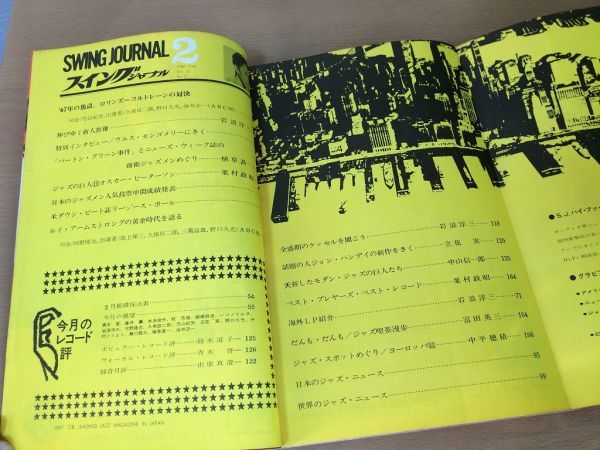 SWING JOURNAL 2
スイングジャーナル
'67年の焦点，ロリンズ＝コルトレーンの対決
伸びゆく新人群像 岩浪洋
特別インタビュー／ウエス・モンゴメリーにきく
「バートン・グリーン事件」とニューズ・ウィーク誌の
前衛ジャズメンめぐり 植草甚
ジャズの巨人⑬オスカー・ピーターソン 粟村政昭
日本のジャズメン人気投票中間成績発表
米ダウン・ビート誌リーダース・ポール
ルイ・アームストロングの黄金時代を語る
今月の
レコード
評
2月新譜採点表 54
今月の展望 55
ポピュラー・レコード評 鈴木道子 125
ヴォーカル・レコード評 青木啓 126
録音月評 出原真澄 122
1967 FEB. LEADING JAZZ MAGAZINE IN JAPAN
全盛期のケッセルを聞こう 岩浪洋三 118
話題の人ジョン・ハンディの新作をきく 立花実 120
夭折したモダン・ジャズの巨人たち 中山信一郎 128
ベスト・プレヤーズ・ベスト・レコード 粟村政昭 164
海外LP紹介 岩浪洋三 71
だんも・だんも／ジャズ喫茶漫歩 富田英三 104
ジャズ・スポットめぐり／ヨーロッパ篇 中平穂積 126
日本のジャズ・ニュース 95
世界のジャズ・ニュース 99
●S.J.ハイ・ファ
●グラビ